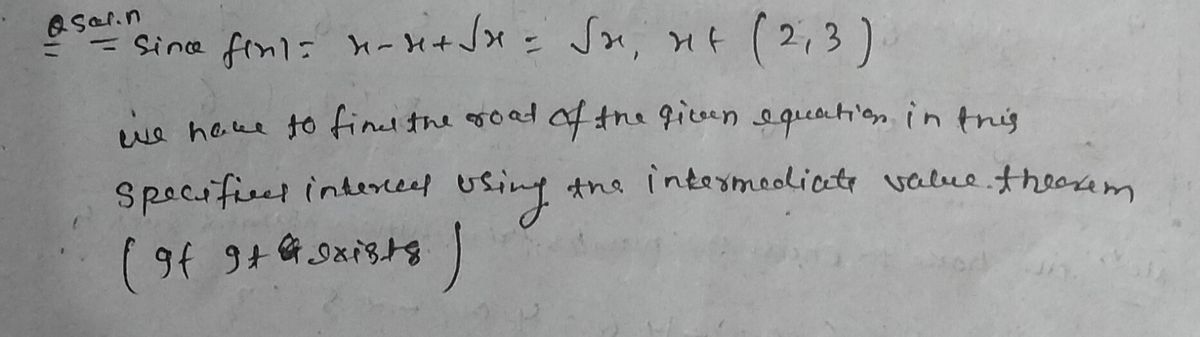 Q Sol.n Since f(x) = x-x+√x = √x, x ∈ (2,3)
we have to find the root of the given equation in this
specified interval using the intermediate value theorem
(If It exists)